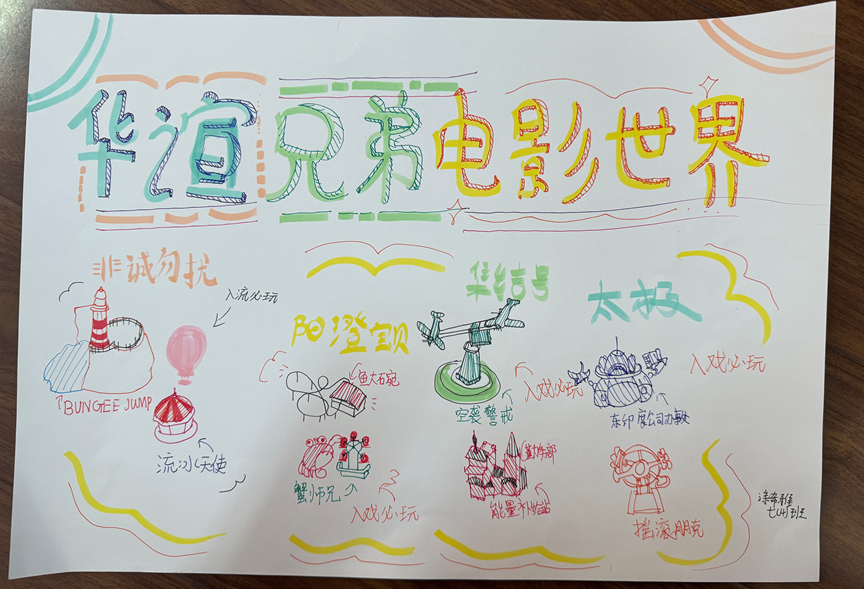 华谊兄弟电影世界
非诚勿扰
入流必玩
BUNGEE JUMP
流冰天使
阳澄宝贝
鱼大石宛
蟹师兄
入戏必玩
集结号
入戏必玩
空袭警戒
能量补给站
太极
入戏必玩
东印度公司办事处
摇滚朋克
七(4)班